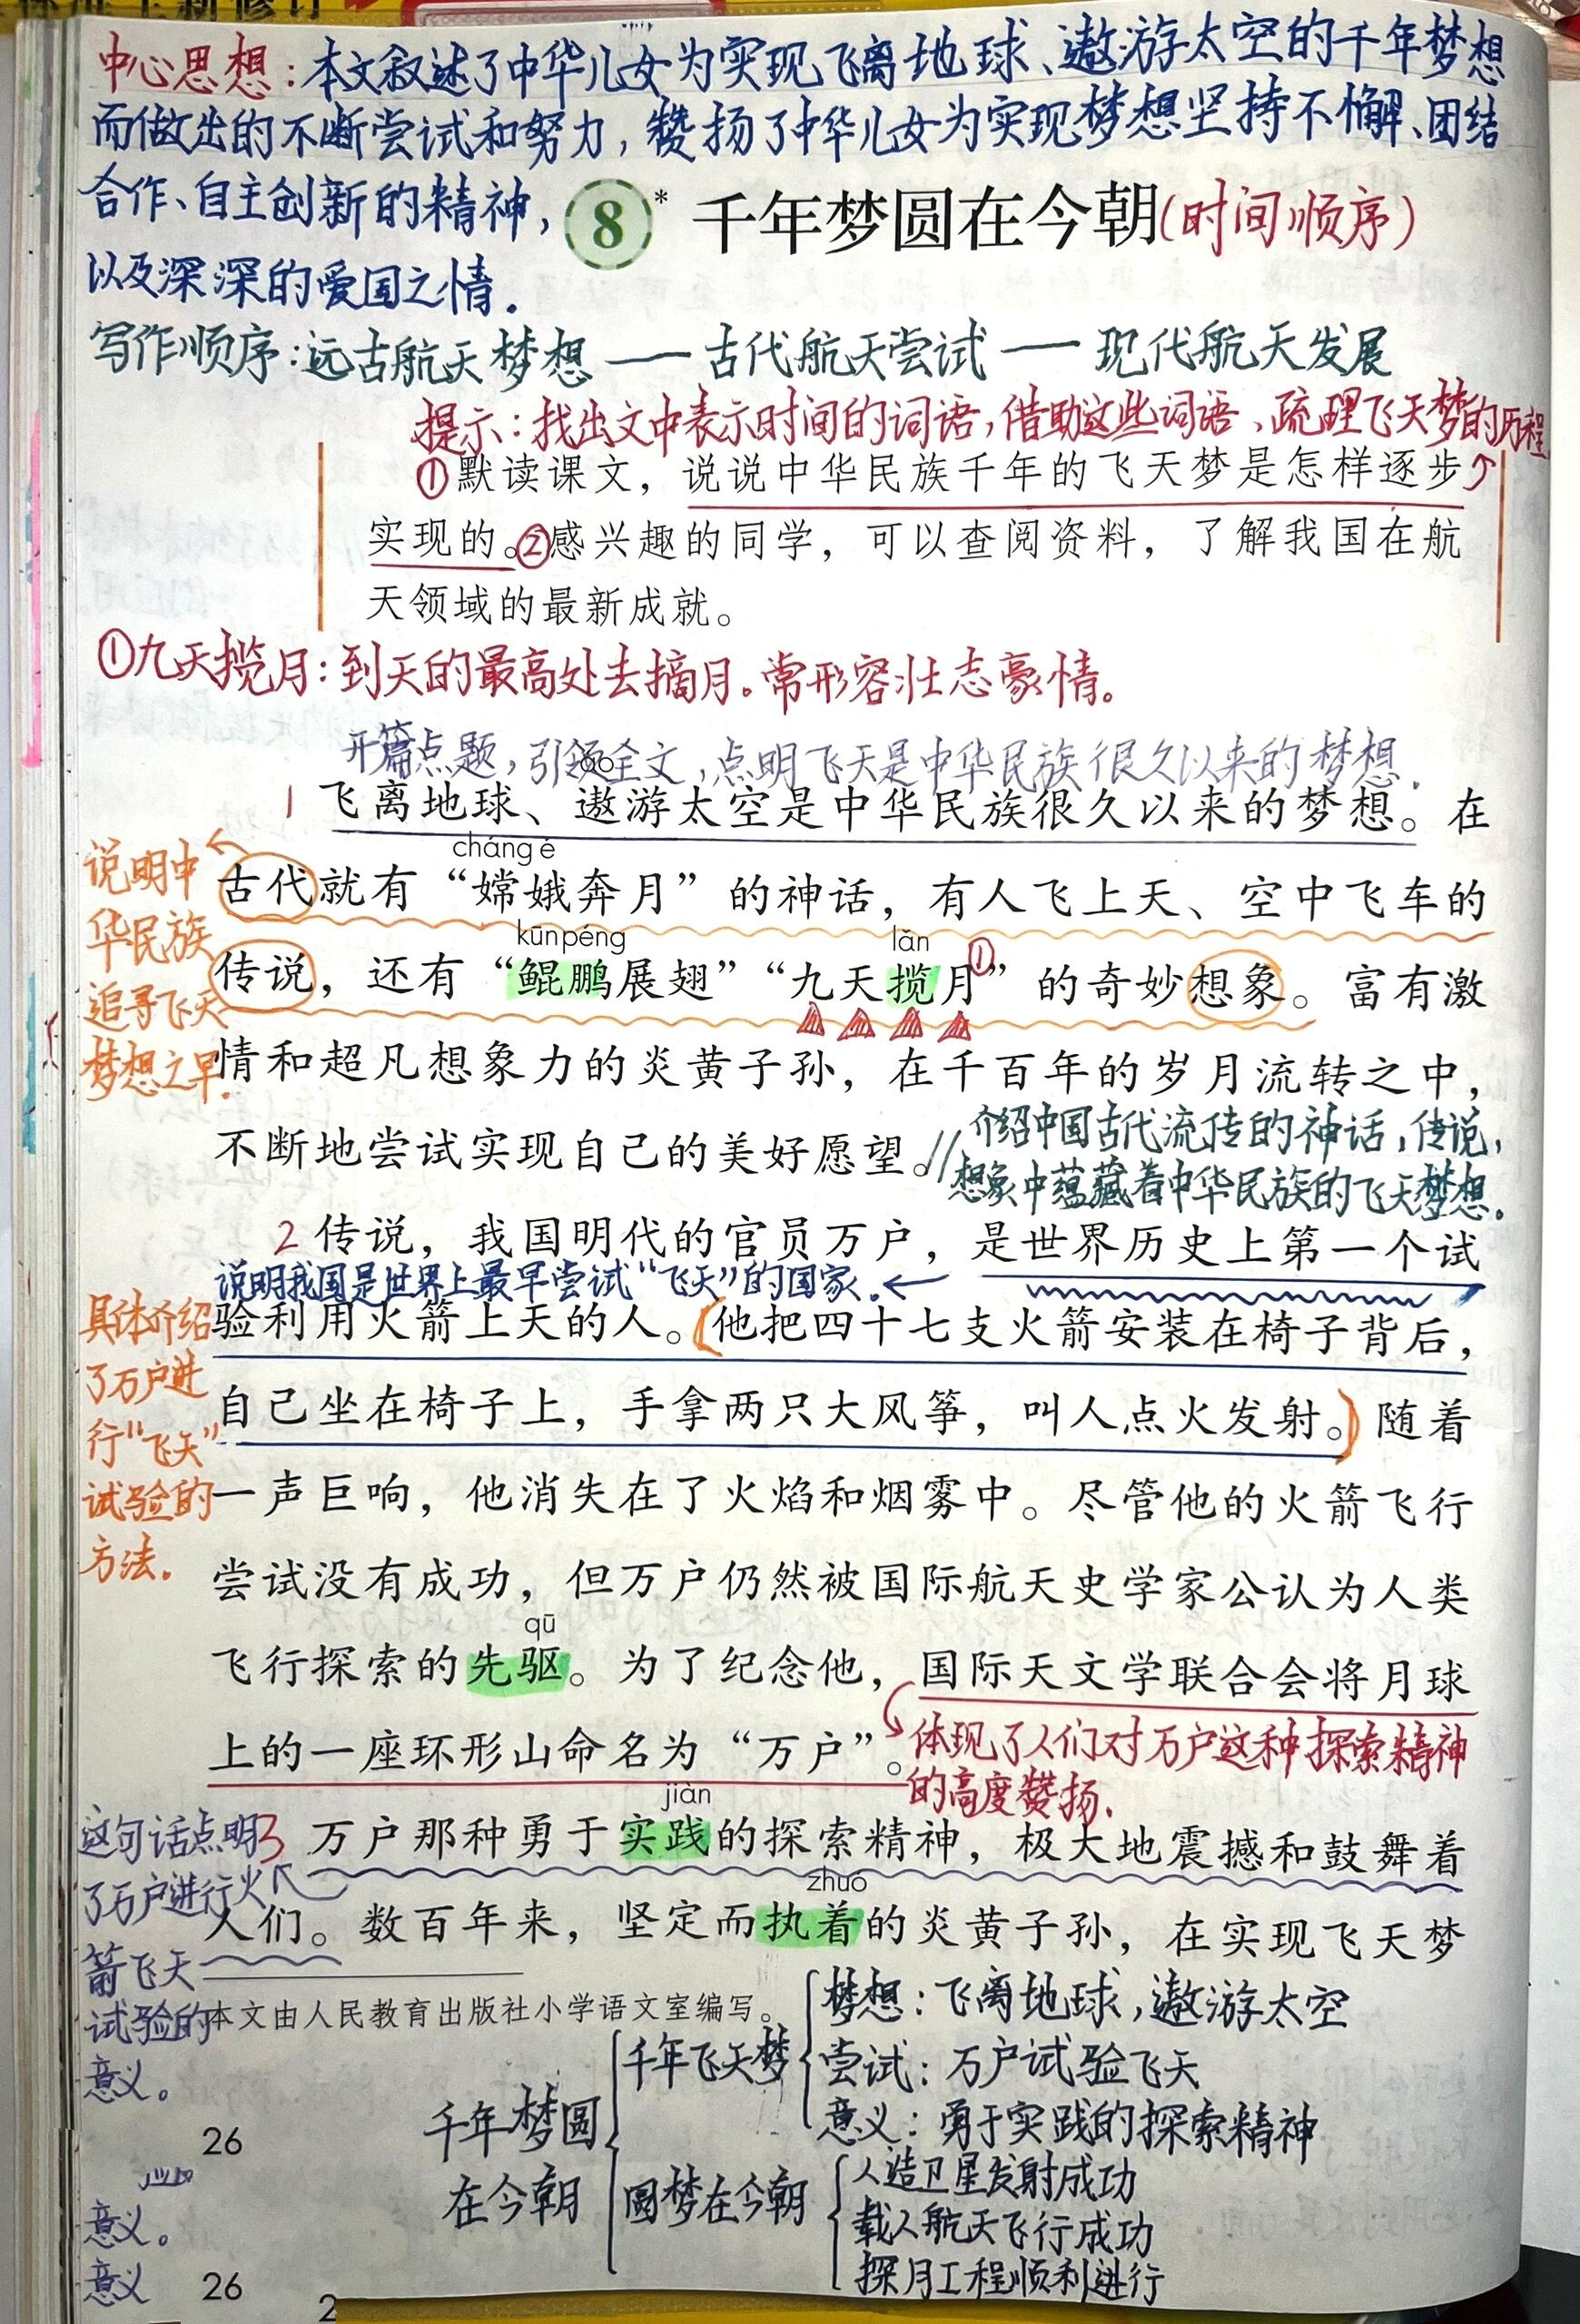 中心思想：本文叙述了中华儿女为实现飞离地球、遨游太空的千年梦想
而做出的不断尝试和努力，赞扬了中华儿女为实现梦想坚持不懈、团结
合作、自主创新的精神，
以及深深的爱国之情.
8* 千年梦圆在今朝(时间顺序)
写作顺序：远古航天梦想——古代航天尝试——现代航天发展
提示：找出文中表示时间的词语，借助这些词语、疏理飞天梦的历程
①默读课文，说说中华民族千年的飞天梦是怎样逐步
实现的。②感兴趣的同学，可以查阅资料，了解我国在航
天领域的最新成就。
①九天揽月：到天的最高处去摘月。常形容壮志豪情。
开篇点题，引领全文，点明飞天是中华民族很久以来的梦想.
áo
1 飞离地球、遨游太空是中华民族很久以来的梦想。在
cháng é
古代就有“嫦娥奔月”的神话，有人飞上天、空中飞车的
kūnpéng lǎn
传说，还有“鲲鹏展翅”“九天揽月①”的奇妙想象。富有激
情和超凡想象力的炎黄子孙，在千百年的岁月流转之中，
不断地尝试实现自己的美好愿望。//
说明中
华民族
追寻飞天
梦想之早.
介绍中国古代流传的神话，传说，
想象中蕴藏着中华民族的飞天梦想.
2 传说，我国明代的官员万户，是世界历史上第一个试
说明我国是世界上最早尝试“飞天”的国家.
验利用火箭上天的人。(他把四十七支火箭安装在椅子背后，
自己坐在椅子上，手拿两只大风筝，叫人点火发射。)随着
一声巨响，他消失在了火焰和烟雾中。尽管他的火箭飞行
尝试没有成功，但万户仍然被国际航天史学家公认为人类
qū
飞行探索的先驱。为了纪念他，国际天文学联合会将月球
上的一座环形山命名为“万户”。
具体介绍
了万户进
行“飞天”
试验的
方法.
体现了人们对万户这种探索精神
的高度赞扬.
jiàn
3 万户那种勇于实践的探索精神，极大地震撼和鼓舞着
zhuó
人们。数百年来，坚定而执着的炎黄子孙，在实现飞天梦
这句话点明
了万户进行火
箭飞天
试验的
意义。
本文由人民教育出版社小学语文室编写。
千年梦圆
在今朝
千年飞天梦
梦想：飞离地球，遨游太空
尝试：万户试验飞天
意义：勇于实践的探索精神
圆梦在今朝
人造卫星发射成功
载人航天飞行成功
探月工程顺利进行
26
意义。
意义
26
2